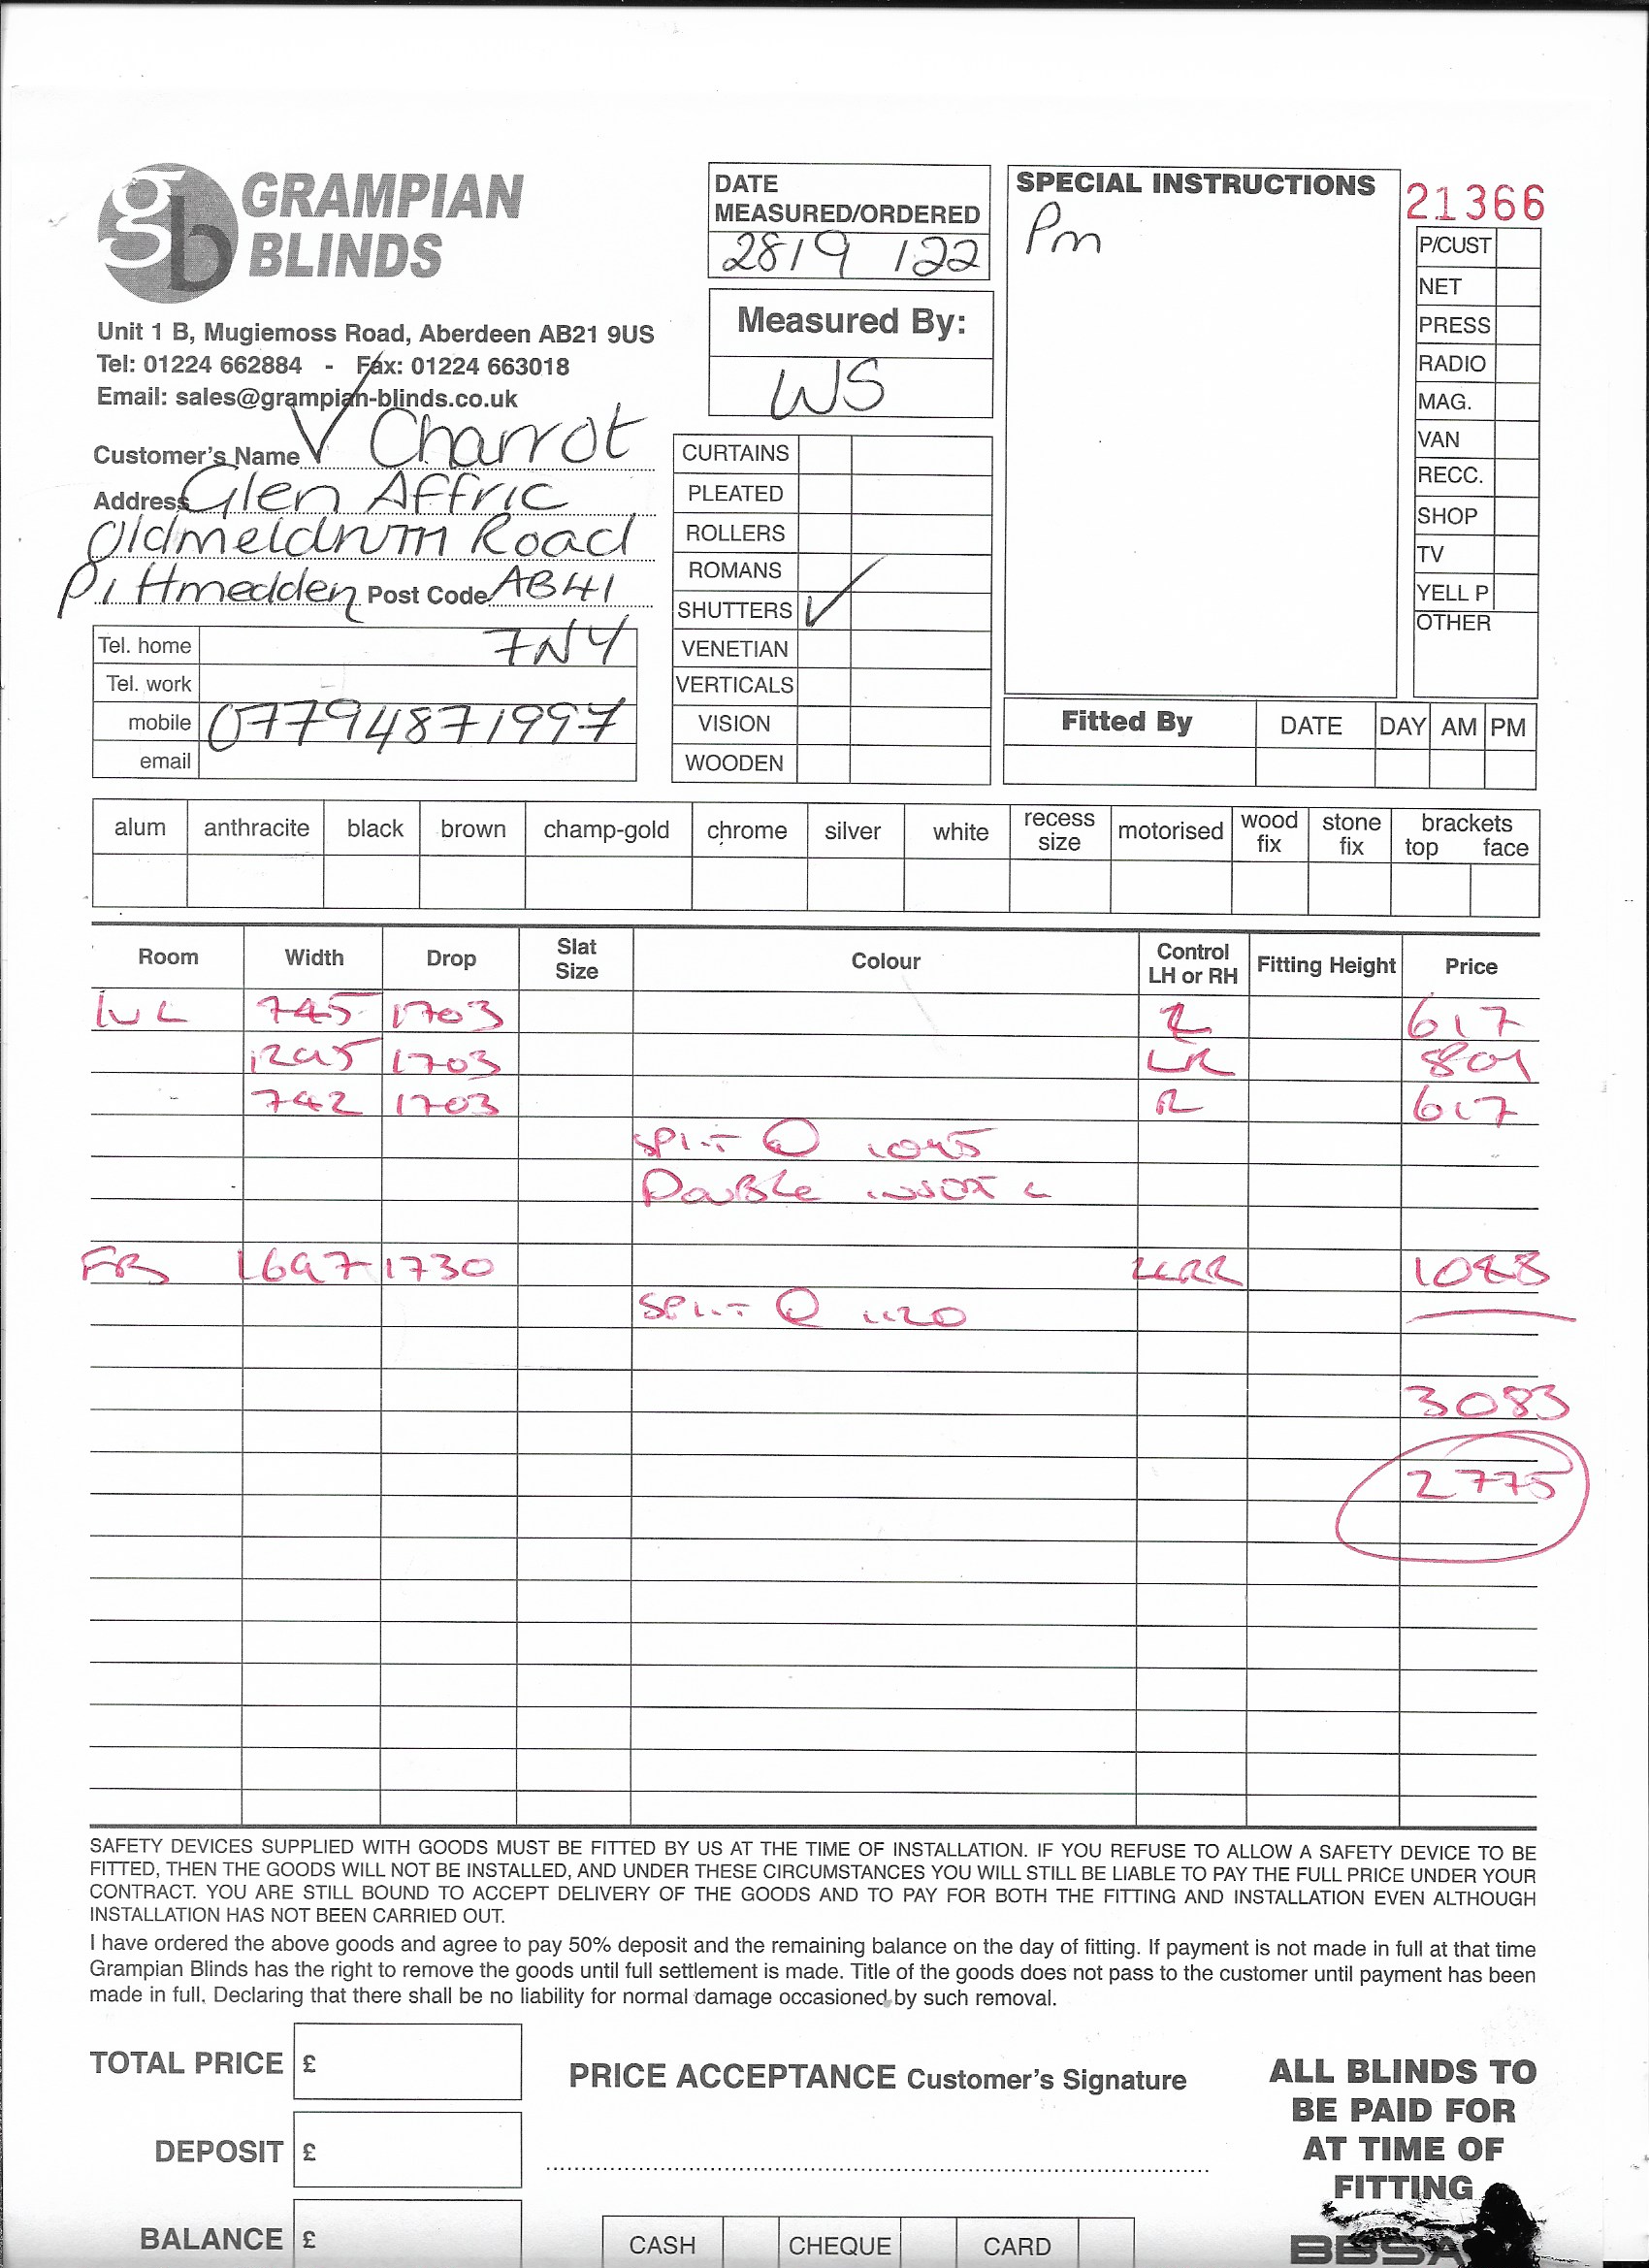 GRAMPIAN
BLINDS
Unit 1 B, Mugiemoss Road, Aberdeen AB21 9US
Tel: 01224 662884 - Fax: 01224 663018
Email: sales@grampian-blinds.co.uk
Customer's Name V Charrot
Address Glen Affric
Oldmeldrum Road
Pittmedden Post Code AB41
Tel. home 7NY
Tel. work
mobile 07794871997
email
DATE
MEASURED/ORDERED
28/9/22
Measured By:
WS
CURTAINS
PLEATED
ROLLERS
ROMANS
SHUTTERS ✓
VENETIAN
VERTICALS
VISION
WOODEN
SPECIAL INSTRUCTIONS
Pm
21366
P/CUST
NET
PRESS
RADIO
MAG.
VAN
RECC.
SHOP
TV
YELL P
OTHER
Fitted By DATE DAY AM PM
alum anthracite black brown champ-gold chrome silver white recess size motorised wood fix stone fix brackets top face
Room Width Drop Slat Size Colour Control LH or RH Fitting Height Price
745 1703 L 617
1295 1703 LR 809
742 1703 R 617
SPLIT @ 1045
DOUBLE
FB 1697 1730 LLRR
SPLIT @ 1120
3083
2775
SAFETY DEVICES SUPPLIED WITH GOODS MUST BE FITTED BY US AT THE TIME OF INSTALLATION. IF YOU REFUSE TO ALLOW A SAFETY DEVICE TO BE
FITTED, THEN THE GOODS WILL NOT BE INSTALLED, AND UNDER THESE CIRCUMSTANCES YOU WILL STILL BE LIABLE TO PAY THE FULL PRICE UNDER YOUR
CONTRACT. YOU ARE STILL BOUND TO ACCEPT DELIVERY OF THE GOODS AND TO PAY FOR BOTH THE FITTING AND INSTALLATION EVEN ALTHOUGH
INSTALLATION HAS NOT BEEN CARRIED OUT.
I have ordered the above goods and agree to pay 50% deposit and the remaining balance on the day of fitting. If payment is not made in full at that time
Grampian Blinds has the right to remove the goods until full settlement is made. Title of the goods does not pass to the customer until payment has been
made in full. Declaring that there shall be no liability for normal damage occasioned by such removal.
TOTAL PRICE £
DEPOSIT £
BALANCE £
PRICE ACCEPTANCE Customer's Signature
CASH CHEQUE CARD
ALL BLINDS TO
BE PAID FOR
AT TIME OF
FITTING
BBSA